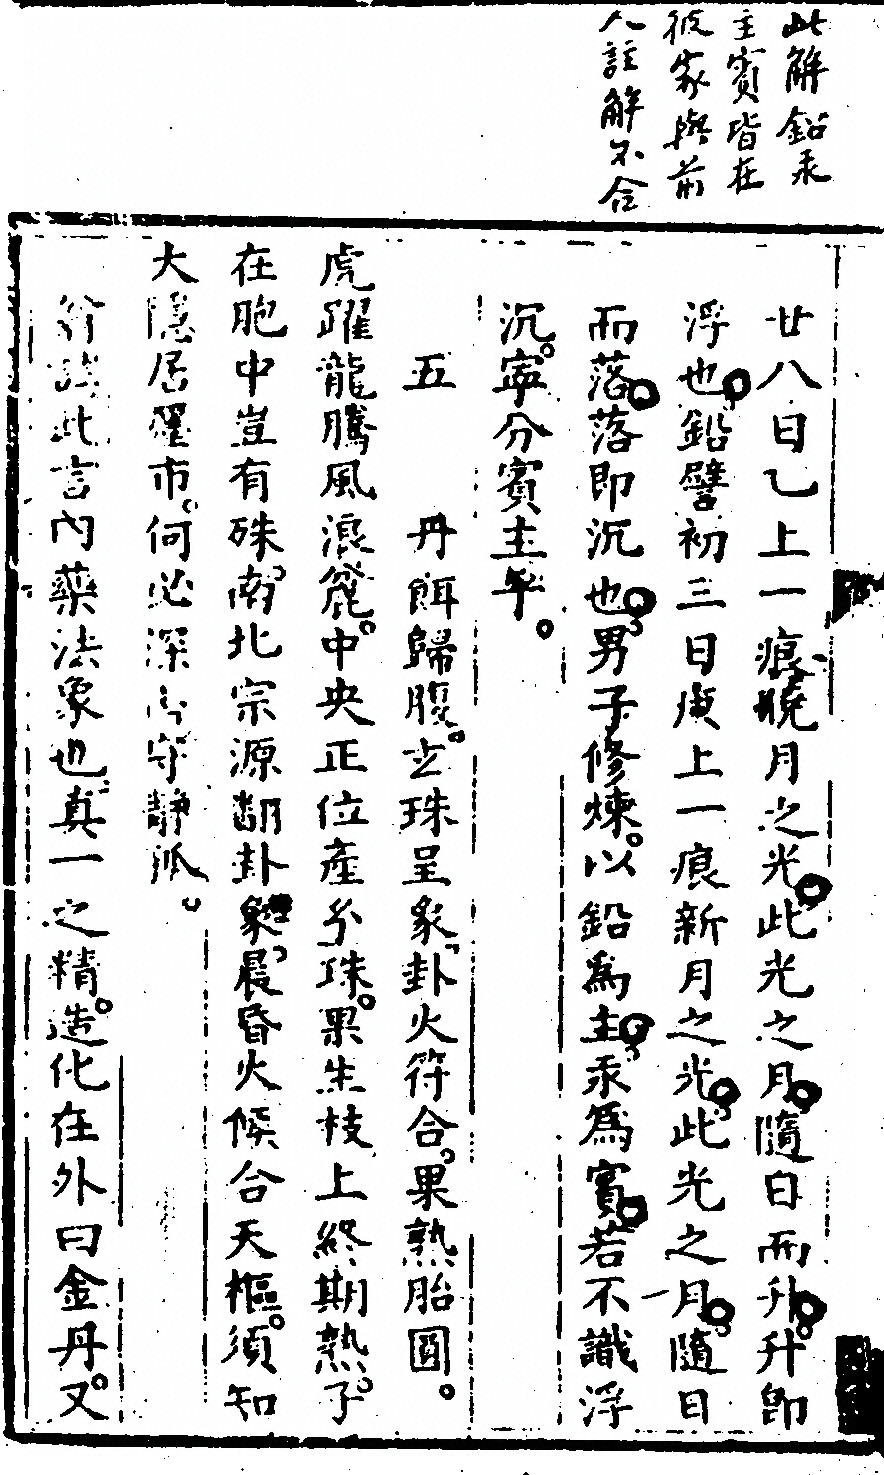 此解鉛汞
主賓皆在
彼家與前
人註解不合
廿八日乙上一痕曉月之光此光之月隨日而升升即
浮也鉛譬初三日庚上一痕新月之光此光之月隨日
而落落即沉也男子修煉以鉛為主汞為賓若不識浮
沉寧分賓主乎
五 丹餌歸腹玄珠呈象卦火符合果熟胎圓
虎躍龍騰風浪麄中央正位產玄珠果生枝上終期熟子
在胞中豈有殊南北宗源翻卦象晨昏火候合天樞須知
大隱居廛市何必深山守靜孤
此言內藥法象也真一之精造化在外曰金丹又